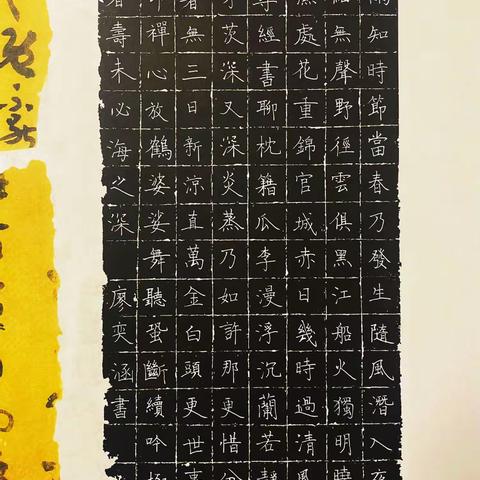 雨知時節當春乃發生隨風潛入夜
細無聲野徑雲俱黑江船火獨明曉
濕處花重錦官城赤日幾時過清風
尋經書聊枕籍瓜李漫浮沉蘭若
茨深又深炎蒸乃如許那更惜分
無三日新涼直萬金白頭更世事
印禪心放鶴婆娑舞聽蛩斷續吟極
者壽未必海之深 廖奕涵書